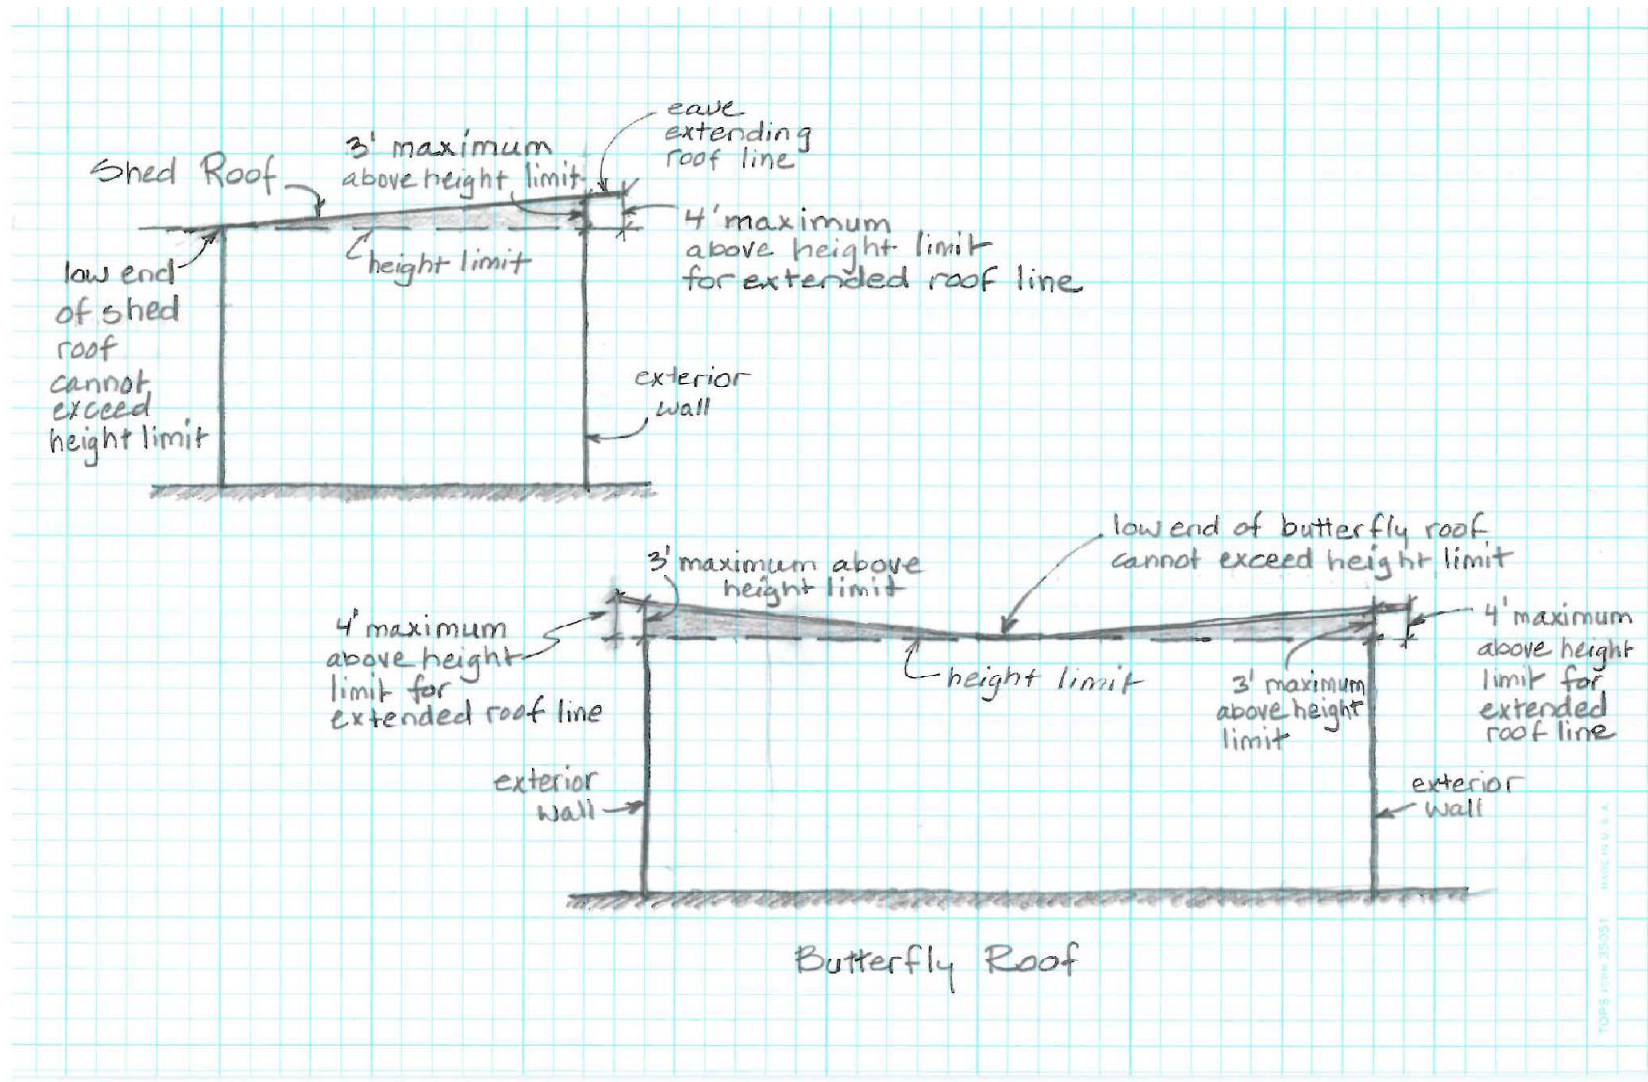 eave
extending
roof line
3' maximum
above height limit
Shed Roof
4' maximum
above height limit
for extended roof line
height limit
low end
of shed
roof
cannot
exceed
height limit
exterior
wall
low end of butterfly roof
cannot exceed height limit
3' maximum above
height limit
4' maximum
above height
limit for
extended roof line
height limit
3' maximum
above height
limit
4' maximum
above height
limit for
extended
roof line
exterior
wall
exterior
wall
Butterfly Roof
TOPS FORM 35051 MADE IN U.S.A.